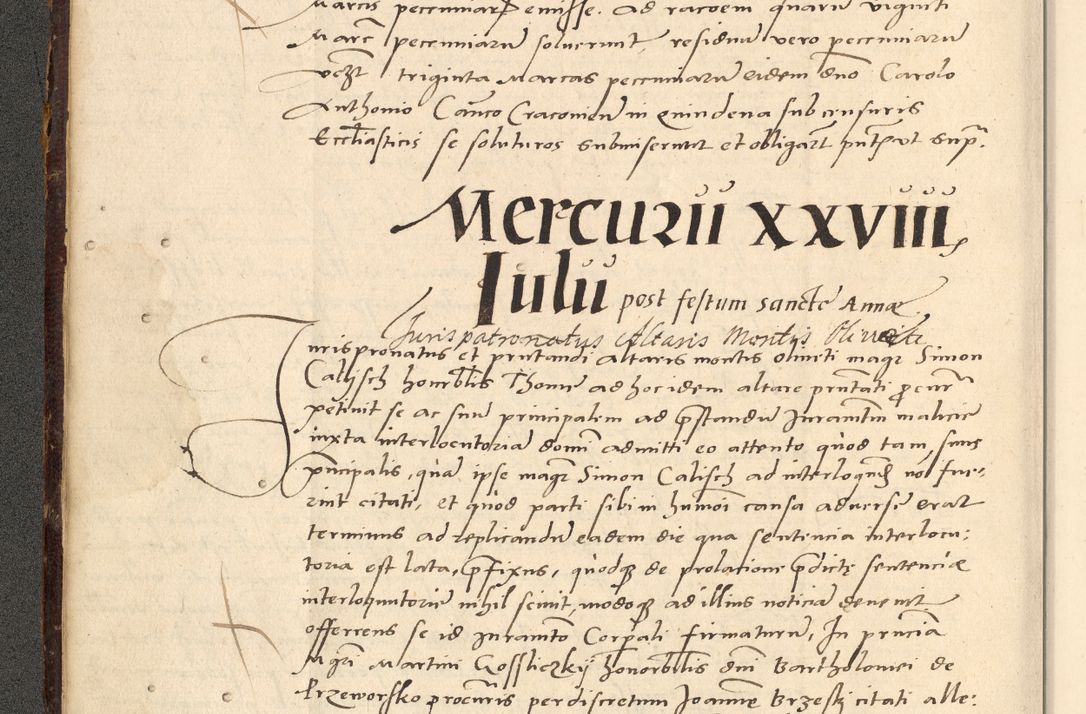 Marcis pecuniarꝝ emisse. Ad racõem quarũ viginti
Marc̃ pecuniarũ soluerunt, residuũ vero pecuniarũ
vcꝫt triginta Marcas pecuniarũ eidem dño Carolo
Anthonio Can̄co Cracovien̄ in quindena sub censuris
Eccl̃iasticis se soluturos submiserunt et obligar̃t put̃ vt sup̃.
Mercurii XXVIII
Julii post festum sanctæ Annæ
Juris patronatus Altaris Montis Oliueti
Jurispronatus et pñtandi altaris montis oliueti magr̃ Simon
Calisch honorabl̃is Thome ad hoc idem altare pñtati ꝓcur̃
petiuit se ac suũ principalem ad p̃standũ Juramtũ malicie
iuxta interlocutoriã domĩ admitti eo attento quod tam suus
pñcipalis, quã ipse magr̃ Simon Calisch ad interloquñd nõ fue-
rint citati, et quod parti sibi in huiusmoi causa aduerse erat
terminus ad replicandũ eadem die qua sententia interlocu:
toria est lata, p̃fixus, quodqꝫ de prolatione p̃dictę sentenciæ
interloqutorie nihil sciuit, modoqꝫ ad illius noticiã deuenit
offerrens se id Juramto Corp̃ali firmaturũ, In pñciã
Mgr̃i Martini Gosśliczkÿ honorabl̃is dñi Bartholomei de
Przeworsko procur̃is per discretum Joannẽ Brzeskj citati alle: